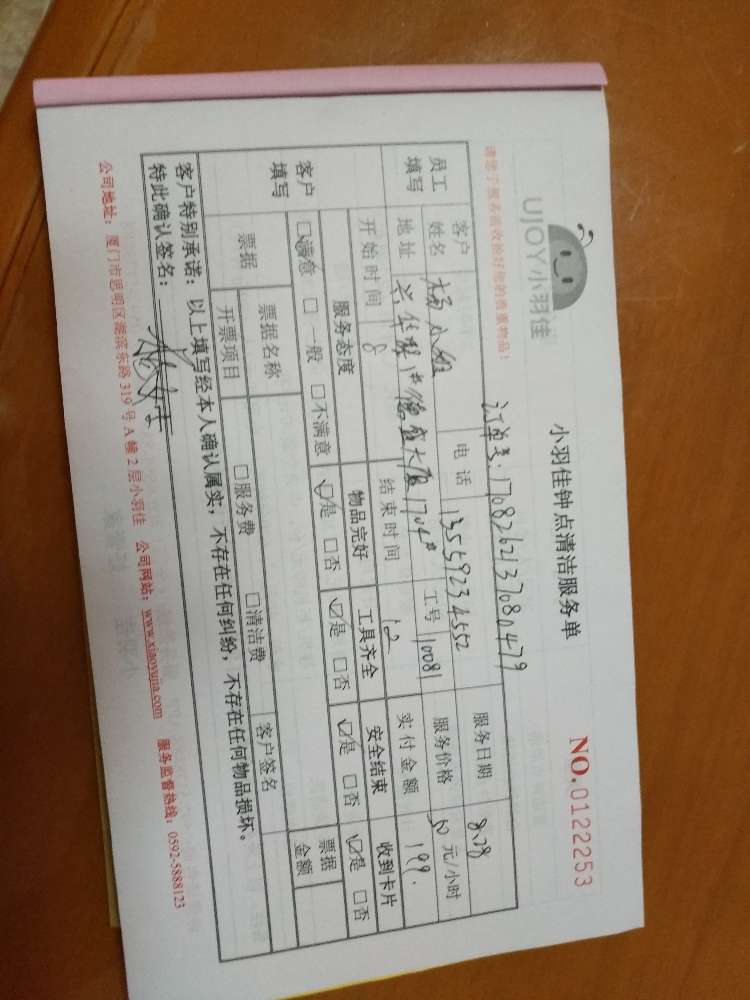 UJOY小羽佳
小羽佳钟点清洁服务单
NO.0122253
请您于服务前收拾好您的贵重物品！
订单号：1708262137080479
员工填写
客户姓名 杨小姐 电话 13559234552 服务日期 8.28
地址 兴华路1#德盛大厦1704# 工号 10081 服务价格 50元/小时
开始时间 8 结束时间 12 实付金额 199.
客户填写
服务态度 物品完好 工具齐全 安全结束 收到卡片
☑满意 □一般 □不满意 ☑是 □否 ☑是 □否 ☑是 □否 ☑是 □否
票据 票据名称 客户签名 票据金额
开票项目 □服务费 □清洁费
客户特别承诺：以上填写经本人确认属实，不存在任何纠纷，不存在任何物品损坏。
特此确认签名：
公司地址：厦门市思明区湖滨东路319号A幢2层小羽佳 公司网站：www.xiaoyujia.com 服务监督热线：0592-5888123